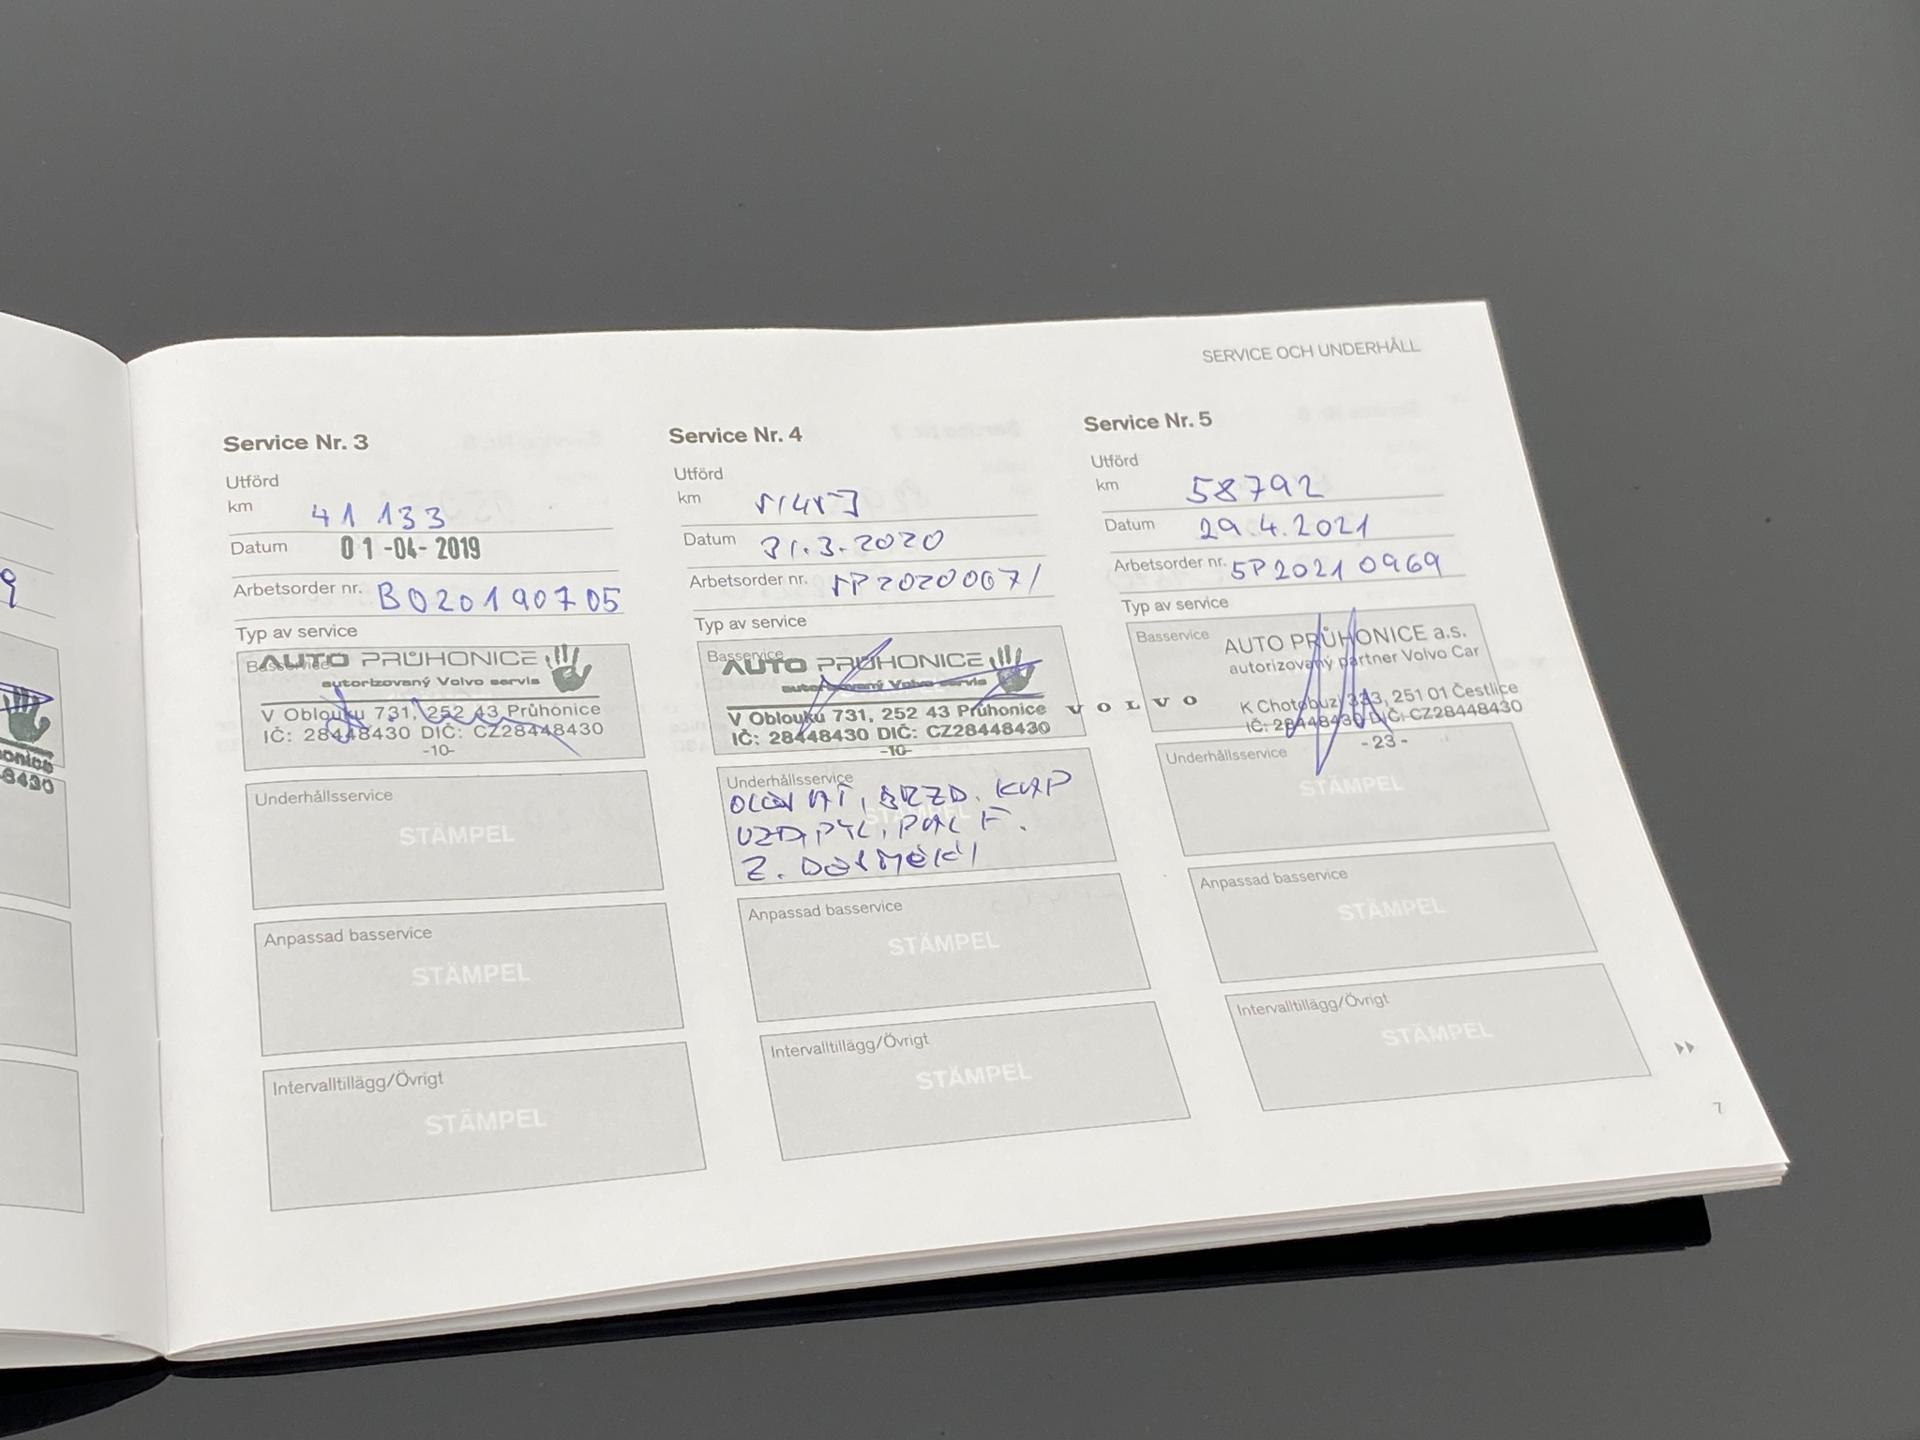 SERVICE OCH UNDERHÅLL
Service Nr. 3
Utförd
km 41 133
Datum 01-04-2019
Arbetsorder nr. B020190705
Typ av service
Basservice
AUTO PRŮHONICE
autorizovaný Volvo servis
V Oblouku 731, 252 43 Průhonice
IČ: 28448430 DIČ: CZ28448430
-10-
Underhållsservice
STÄMPEL
Anpassad basservice
STÄMPEL
Intervalltillägg/Övrigt
STÄMPEL
Service Nr. 4
Utförd
km
Datum 31.3.2020
Arbetsorder nr.
Typ av service
Basservice
AUTO PRŮHONICE
autorizovaný Volvo servis
V Oblouku 731, 252 43 Průhonice
IČ: 28448430 DIČ: CZ28448430
-10-
Underhållsservice
STÄMPEL
Anpassad basservice
STÄMPEL
Intervalltillägg/Övrigt
STÄMPEL
Service Nr. 5
Utförd
km 58792
Datum 29.4.2021
Arbetsorder nr. SP20210969
Typ av service
Basservice
AUTO PRŮHONICE a.s.
autorizovaný partner Volvo Car
VOLVO
K Chotobuzi 333, 251 01 Čestlice
IČ: 28448430 DIČ: CZ28448430
-23-
Underhållsservice
STÄMPEL
Anpassad basservice
STÄMPEL
Intervalltillägg/Övrigt
STÄMPEL
7